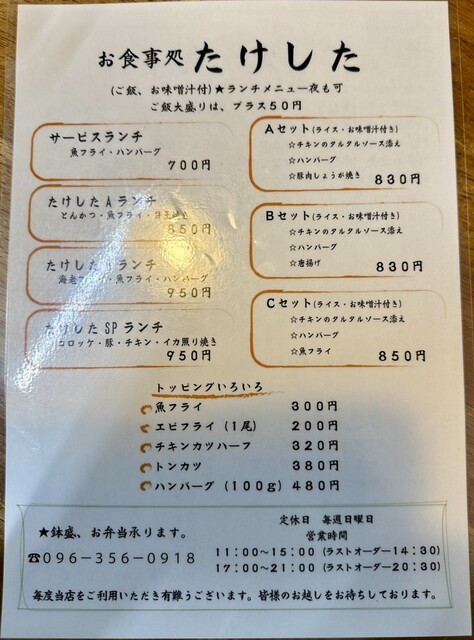 お食事処 たけした
(ご飯、お味噌汁付)★ランチメニュー夜も可
ご飯大盛りは、プラス50円
サービスランチ
魚フライ・ハンバーグ
700円
たけしたAランチ
とんかつ・魚フライ・目玉
850円
たけした ランチ
海老フ ・魚フライ・ハンバーグ
950円
たけしたSPランチ
コロッケ・豚・チキン・イカ照り焼き
950円
Aセット(ライス・お味噌汁付き)
☆チキンのタルタルソース添え
☆ハンバーグ
☆豚肉しょうが焼き 830円
Bセット(ライス・お味噌汁付き)
☆チキンのタルタルソース添え
☆ハンバーグ
☆唐揚げ
830円
Cセット(ライス・お味噌汁付き)
☆チキンのタルタルソース添え
☆ハンバーグ
☆魚フライ 850円
トッピングいろいろ
魚フライ 300円
エビフライ(1尾) 200円
チキンカツハーフ 320円
トンカツ 380円
ハンバーグ(100g) 480円
★鉢盛、お弁当承ります。
☎096-356-0918
定休日 毎週日曜日
営業時間
11:00~15:00(ラストオーダー14:30)
17:00~21:00(ラストオーダー20:30)
毎度当店をご利用いただき有難うございます。皆様のお越しをお待ちしております。